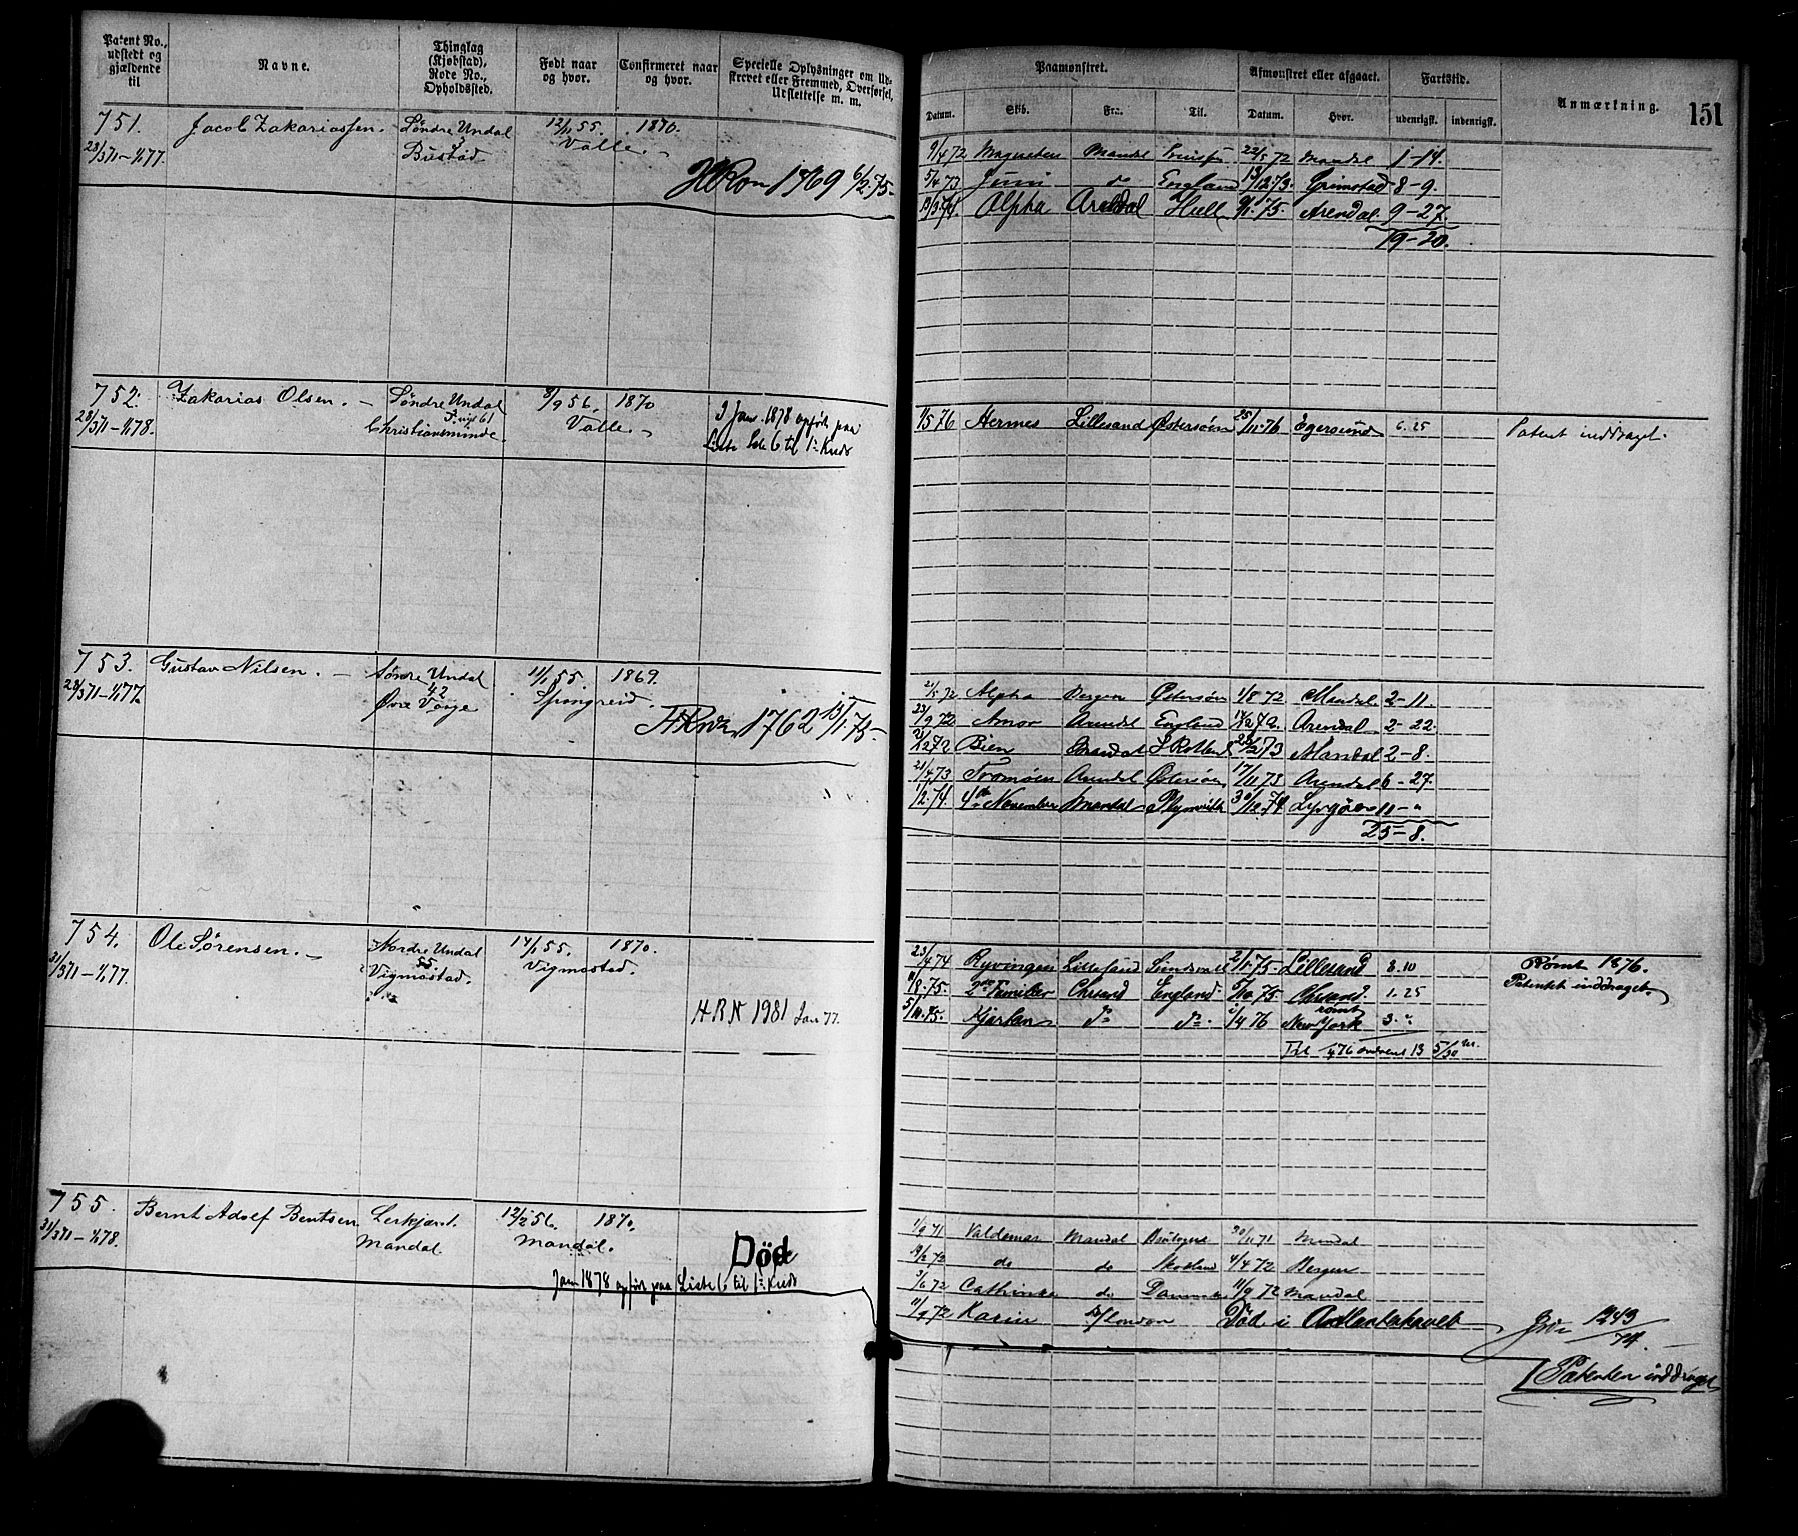 Patent No., udstedt og gjældende til
Navne.
Thinglag (Kjøbstad), Rode No., Opholdssted.
Født naar og hvor.
Confirmeret naar og hvor.
Specielle Oplysninger om Udskrevet eller Fremmed, Overførsel, Udslettelse m. m.
Paamønstret.
Afmønstret eller afgaaet.
Fartstid.
Anmærkning.
151
Datum. Skib. Fra. Til. Datum. Hvor. udenrigst. indenrigst.
751. Jacob Zakariassen. Søndre Undal 12/1 55. 1870.
28/3 71 – 1/1 77. Bustad Valle.
1469 6/2 75.
9/4 72 Mandal 22/5 72 Mandal 1-14.
5/4 73 Juni do England 13/12 73. Grimstad 8-9.
Alpha Arendal Hull 9/1. 75. Arendal. 9-27.
19-20.
752. Zakarias Olsen. Søndre Undal 8/9 56. 1870
28/3 71 – 1/1 78. Christiansminde Valle.
Jan. 1878 opført paa
Liste 6 til
1/5 76 Hermes Lillesand Østersøen 25/11. 76 Egersund 6. 25 Patent inddraget.
753. Gustav Nilsen. Søndre Undal 11/1 55 1869.
28/3 71 – 1/1 77. 42 Spingreid.
Øvre
1762 13/1 75
21/5 72 Alpha Bergen Østersøn 1/8 72 Mandal 2-11.
23/9 72 Amor Arendal England Arendal. 2-22.
Bien Mandal 2-8.
21/4 73 Tromøen Arendal Østersøen 17/11 73 Arendal 6-27.
1/2 74. 4de November Mandal Plymouth 30/12. 74. Lyngør 11-"
25-8.
754. Ole Sørensen. Nordre Undal 14/1 55. 1870.
31/3 71 – 1/1 77. 55. Vigmostad.
Vigmostad.
HRN 1981 Jan 77.
23/4 74 Ryvingen Lillesand Sundsvall 2/1 75. Lillesand 8.10 Rømt 1876.
11/8. 75. 2de Familier Chrsand England. 5/10 75. Chrsand. 1. 25 Patentet inddraget.
5/10. 75. Kjartan Do Do 1/4 76 rømt New York
Til 1/4 76 13 5/30
755. Bernt Adolf Bentsen Lerkjær 12/2 56. 1870.
31/3 71 – 1/1 78. Mandal Mandal.
Død
Jan 1878 opført paa Liste 6 til
1/9 71 Valdemar Mandal 30/11 71 Mandal
19/2 72 do do Skotland 4/4 72 Bergen
3/6 72 Cathinka do Danmark 11/9 72 Mandal
11/9 72 Karin London Død i Atlanterhavet
1243/74.
Patenten inddraget